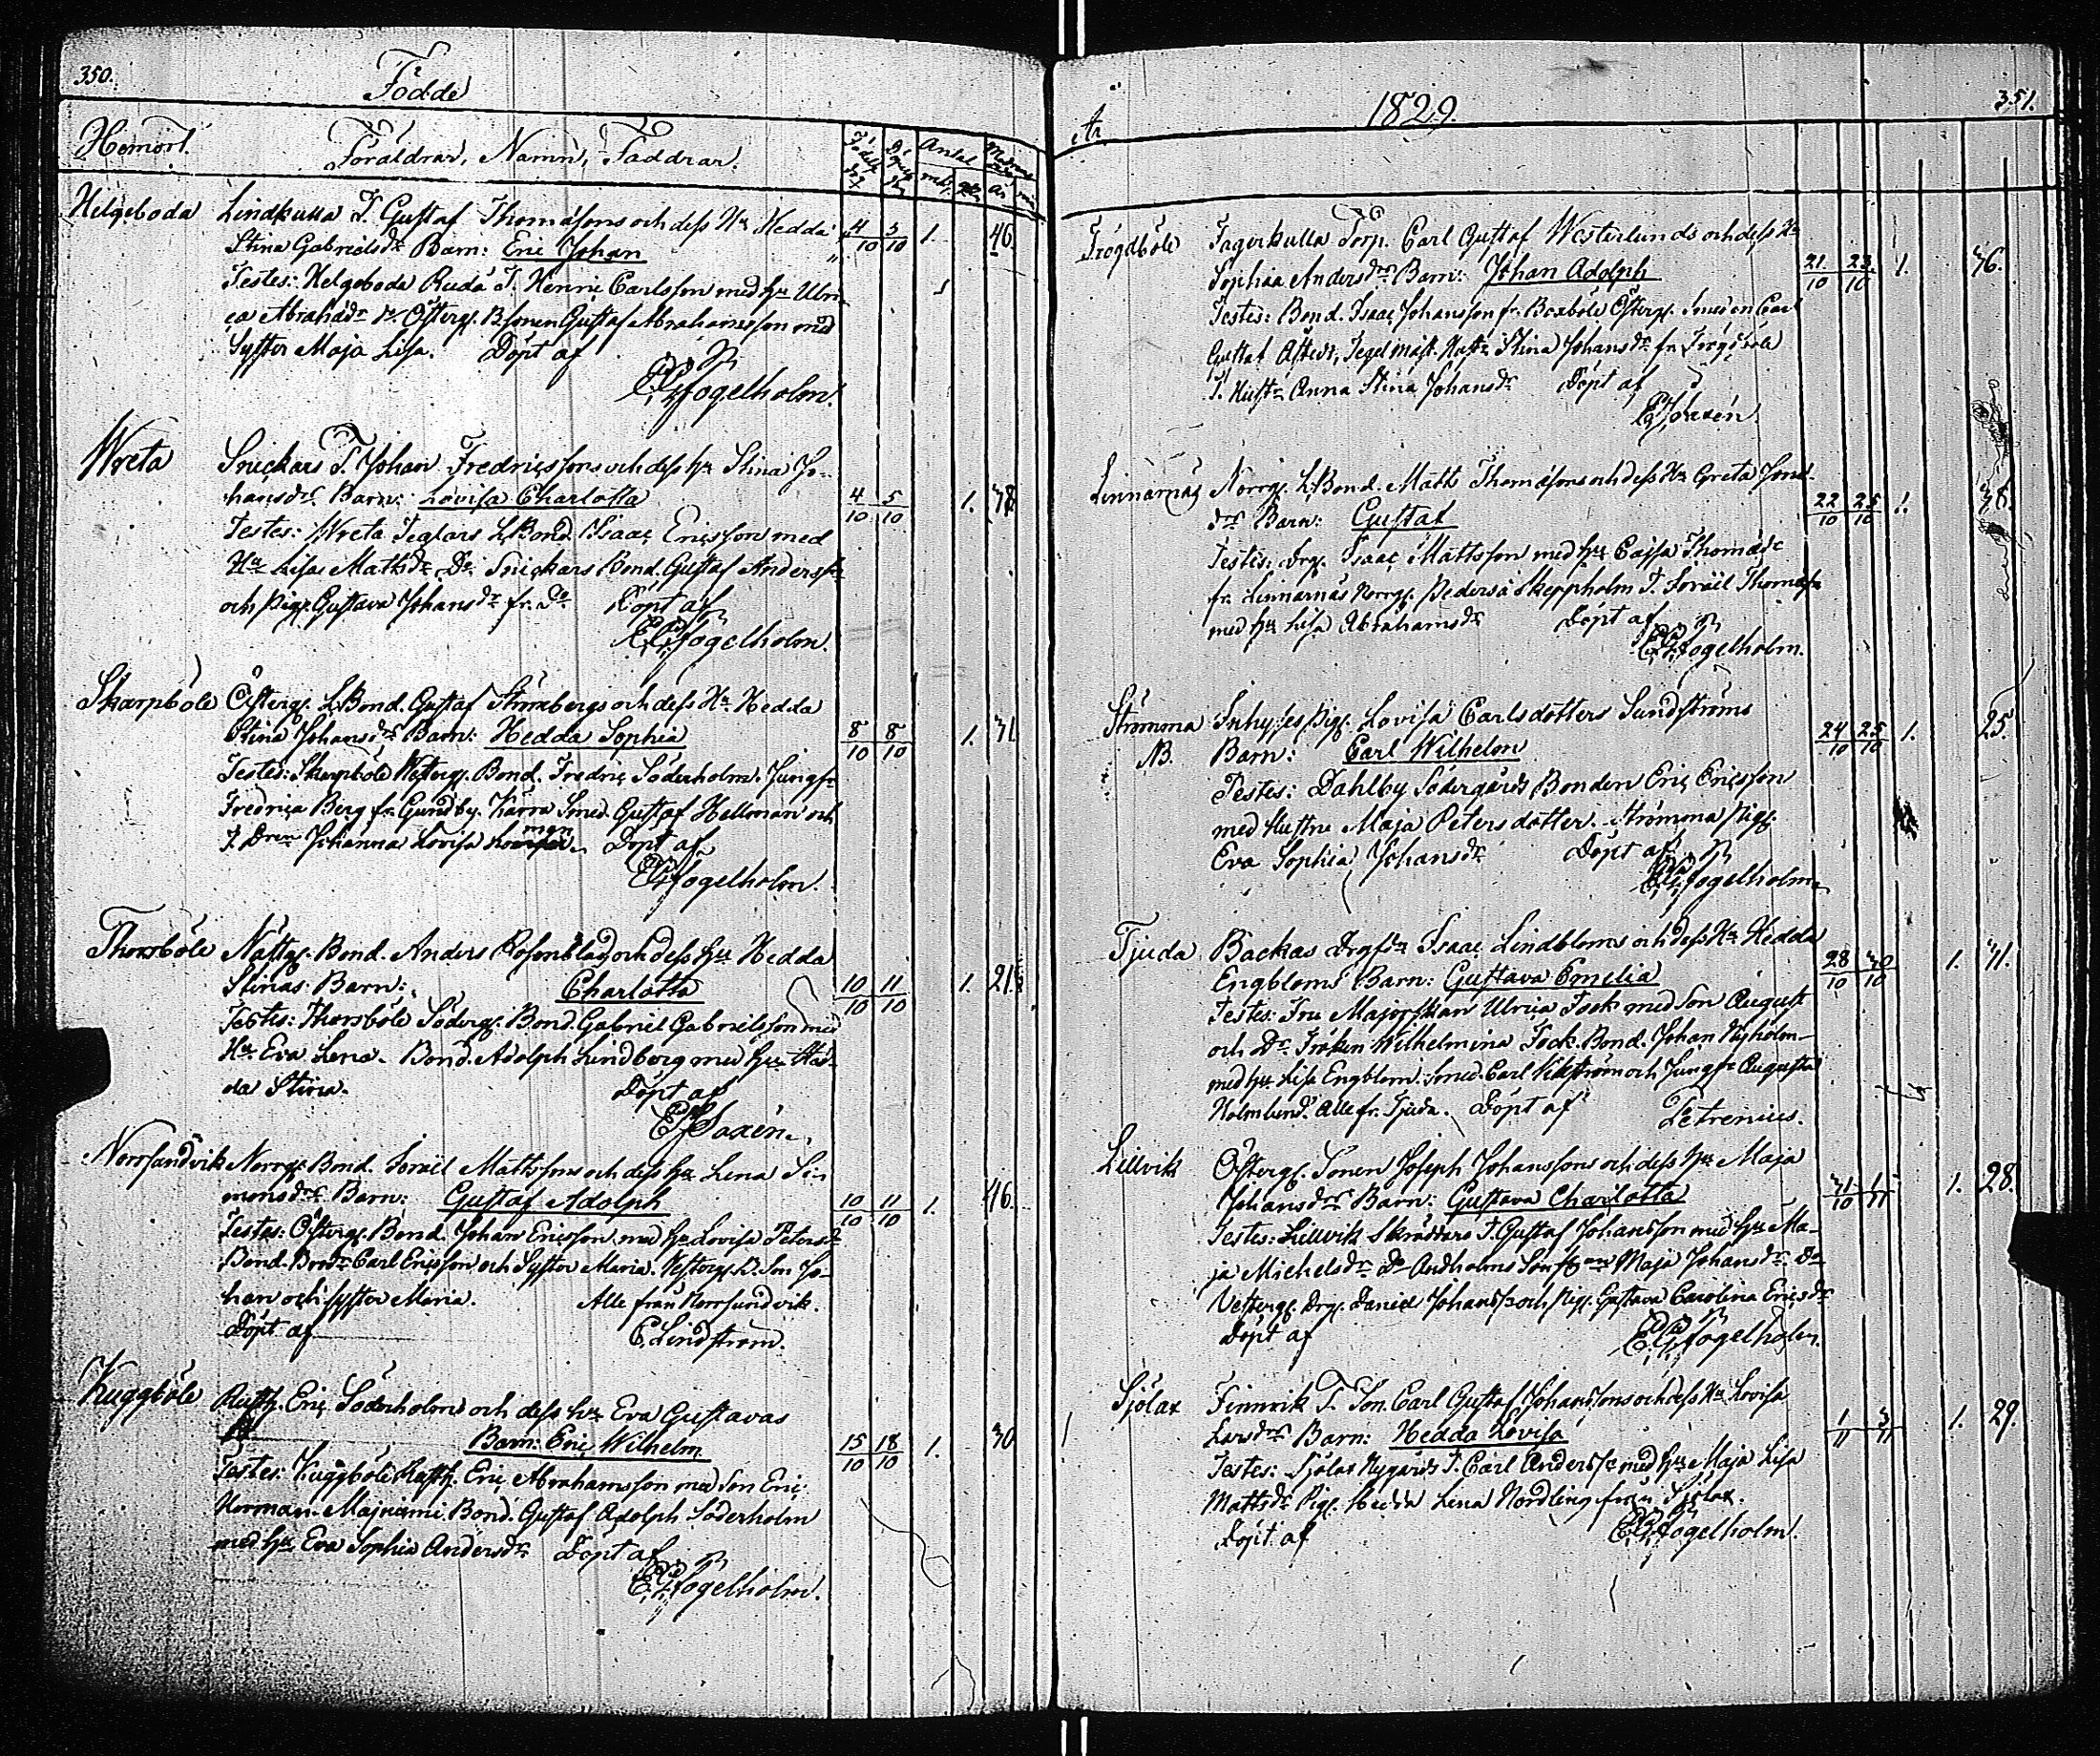 350.
Födde
Hemort.
Föräldrar, Namn, Faddrar.
Födelse dag
Döpelse dag
Antal
Helgeboda Lindkulla T. Gustaf Thomassons och dess Hu Hedda 4/10 5/10 1. 40.
Stina Gabrielsdrs Barn: Eric Johan
Testes: Helgeboda Ruda T. Henric Carlsson med hu Ulri
ca Abrahdr Östergs. BSonen Gustaf Abrahamsson med
Syster Maja Lisa. Döpt af
Fogelholm.
Wreta Snickars T. Johan Fredricssons och dess hu Stina Jo-
hansdrs Barn: Lovisa Charlotta 4/10 5/10 1. 38
Testes: Wreta Teglars LBond. Isaac Ericsson med
Hu Lisa Mattsdr Do Snickars Bond. Gustaf Anderss.
och Pig. Gustava Johansdr fr. Do Döpt af
Fogelholm.
Skarpböle Östergs. LBond. Gustaf Strömbergs och dess Hu Hedda
Stina Johansdrs Barn: Hedda Sophia 8/10 8/10 1. 31
Testes: Skarpböle Westergs. Bond. Fredric Söderholm. Jungfr
Fredrica Berg fr. Gundby. Kärra Smed. Gustaf Hellman och
T. Dren Johanna Lovisa Döpt af
Fogelholm.
Thorsböle Nättgs. Bond. Anders Rosenblad och dess hu Hedda
Stinas Barn: Charlotta 10/10 11/10 1. 21.
Testes: Thorsböle Södergs. Bond. Gabriel Gabrielsson med
Hu Eva Lena. Bond. Adolph Lindberg med hu Hed-
da Stina. Döpt af
Saxén.
Norrsundvik Norrgs. Bond. Israël Mattssons och dess hu Lena Si-
monsdrs Barn: Gustaf Adolph 10/10 11/10 1. 46.
Testes: Östergs. Bond. Johan Ericsson med hu Lovisa Petersdr
Bond. Brodr Carl Ericsson och Syster Maria. Westergs. B. Son Jo-
han och syster Maria. Alle från Norrsundvik.
Döpt af C. Lindström.
Kuggböle Rusth. Eric Söderholms och dess hu Eva Gustavas
Barn: Eric Wilhelm 15/10 18/10 1. 30
Testes: Kuggböle Rusth. Eric Abrahamsson med Son Eric
Herman. Majniemi Bond. Gustaf Adolph Söderholm
med hu Eva Sophia Andersdr Döpt af
Fogelholm.
År 1829. 351.
Frögdböle Fagerkulla Torp. Carl Gustaf Westerlunds och dess Hu
Sophia Andersdrs Barn: Johan Adolph 21/10 23/10 1. 36.
Testes: Bond. Isaac Johansson fr. Boxböle Östergs. Smeden Carl
Gustaf Åstedt, Tegelmäst. Hustr. Stina Johansdr fr Frögdböle
T. Hustr Anna Stina Johansdr Döpt af
Saxén.
Linnarnäs Norrgs. LBond. Matts Thomassons och dess Hu Greta Jons-
drs Barn: Gustaf 22/10 25/10 1. 38.
Testes: Drg. Isaac Mattsson med hu Cajsa Thomasdr
fr. Linnarnäs Norrgs. Pederså Skeppholm T. Israël Thomass.
med hu Lisa Abrahamsdr Döpt af
Fogelholm.
Strömma Inhyses Pig. Lovisa Carlsdotters Sundströms
NB. Barn: Carl Wilhelm 24/10 25/10 1. 25.
Testes: Dahlby Södergårds Bonden Eric Ericsson
med Hustru Maja Petersdotter. Strömma Pig.
Eva Sophia Johansdr Döpt af
Fogelholm.
Tjuda Backas Drgsn Isaac Lindbloms och dess Hu Hedda
Engbloms Barn: Gustava Emelia 28/10 30/10 1. 31.
Testes: Fru Majorskan Ulrica Fock med Son August
och Dr Fröken Wilhelmina Fock. Bond. Johan Nyholm
med hu Lisa Engblom. Smed. Carl Wikström och Jungfr Augusta
Holmlund. Alle fr. Tjuda. Döpt af Petrenius.
Lillvik Östergs. Sonen Joseph Johanssons och dess hu Maja
Johansdrs Barn: Gustava Charlotta 31/10 1/11 1. 28.
Testes: Lillvik Skräddars T. Gustaf Johansson med hu Ma-
ja Michelsdr Do Andholms Maja Johansdr Do
Westergs. Drg. Daniel Johanss. och Pig. Gustava Carolina Ericsdr
Döpt af Fogelholm.
Sjölax Finnvik T. Son Carl Gustaf Johanssons och dess Hu Lovisa
Larsdrs Barn: Hedda Lovisa 1/11 3/11 1. 29.
Testes: Sjölax Nygårds T. Carl Anderss. med hu Maja Lisa
Mattsdr Pig. Hedda Lena Nordling från Sjölax.
Döpt af Fogelholm.